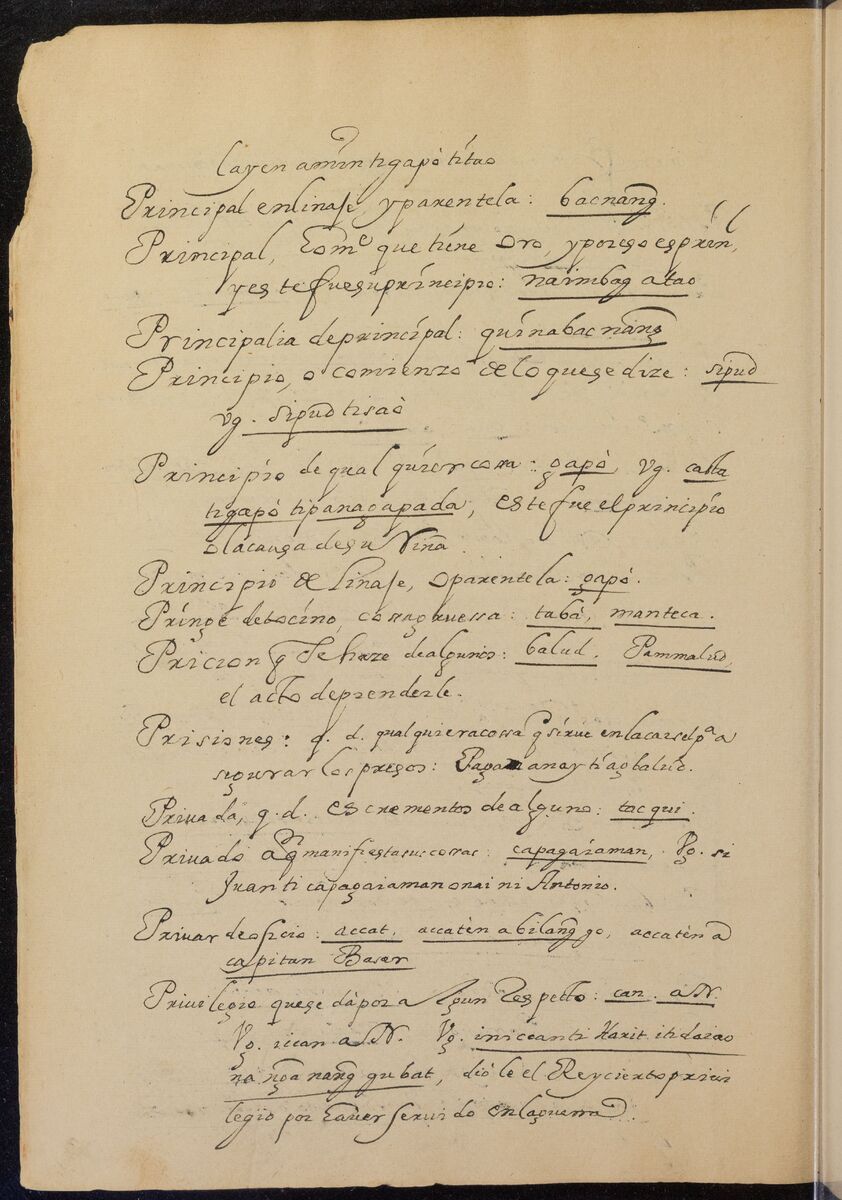 layen amin ti gapò ti tao
Principal en linaje, y parentela: bacnang.
Principal, home que tiene oro, y por eso es prin,
y este fue su principio: naimbag a tao
Principalia de principal: quinabacnang
Principio, o comienzo de lo que se dize: sipud
vg. sipud ti saò
Principio de qual quier cossa: gapò, vg.
ti gapò ti panagapada, este fue el principio
o la causa de su riña.
Principio de linaje, o parentela: gapò.
Pringe de tocino, cossa gruessa: tabà, manteca.
Pricion q se haze de algunos: balud. Pammalud,
el acto de prenderle.
Prisiones: q. d. qual quiera cossa q sirue en la carsel pa a
segurar los presos: ti ag balud.
Priuada, q. d. escrementos de alguno: tacqui.
Priuado a qn manifiesta sus cossas: capagaiaman, Vg. si
Juan ti capagaiaman onai ni Antonio.
Priuar de oficio: accat, accatèn a bilang go, accatèn a
capitan Baser
Priuilegio que se dà por algun respecto: can. a N.
Vg. iccan a N. Vg. iniccan ti Harit iti daiao
na nga nang gubat, diòle el Rey cierto priui
legio por hauer seruido en la guerra.